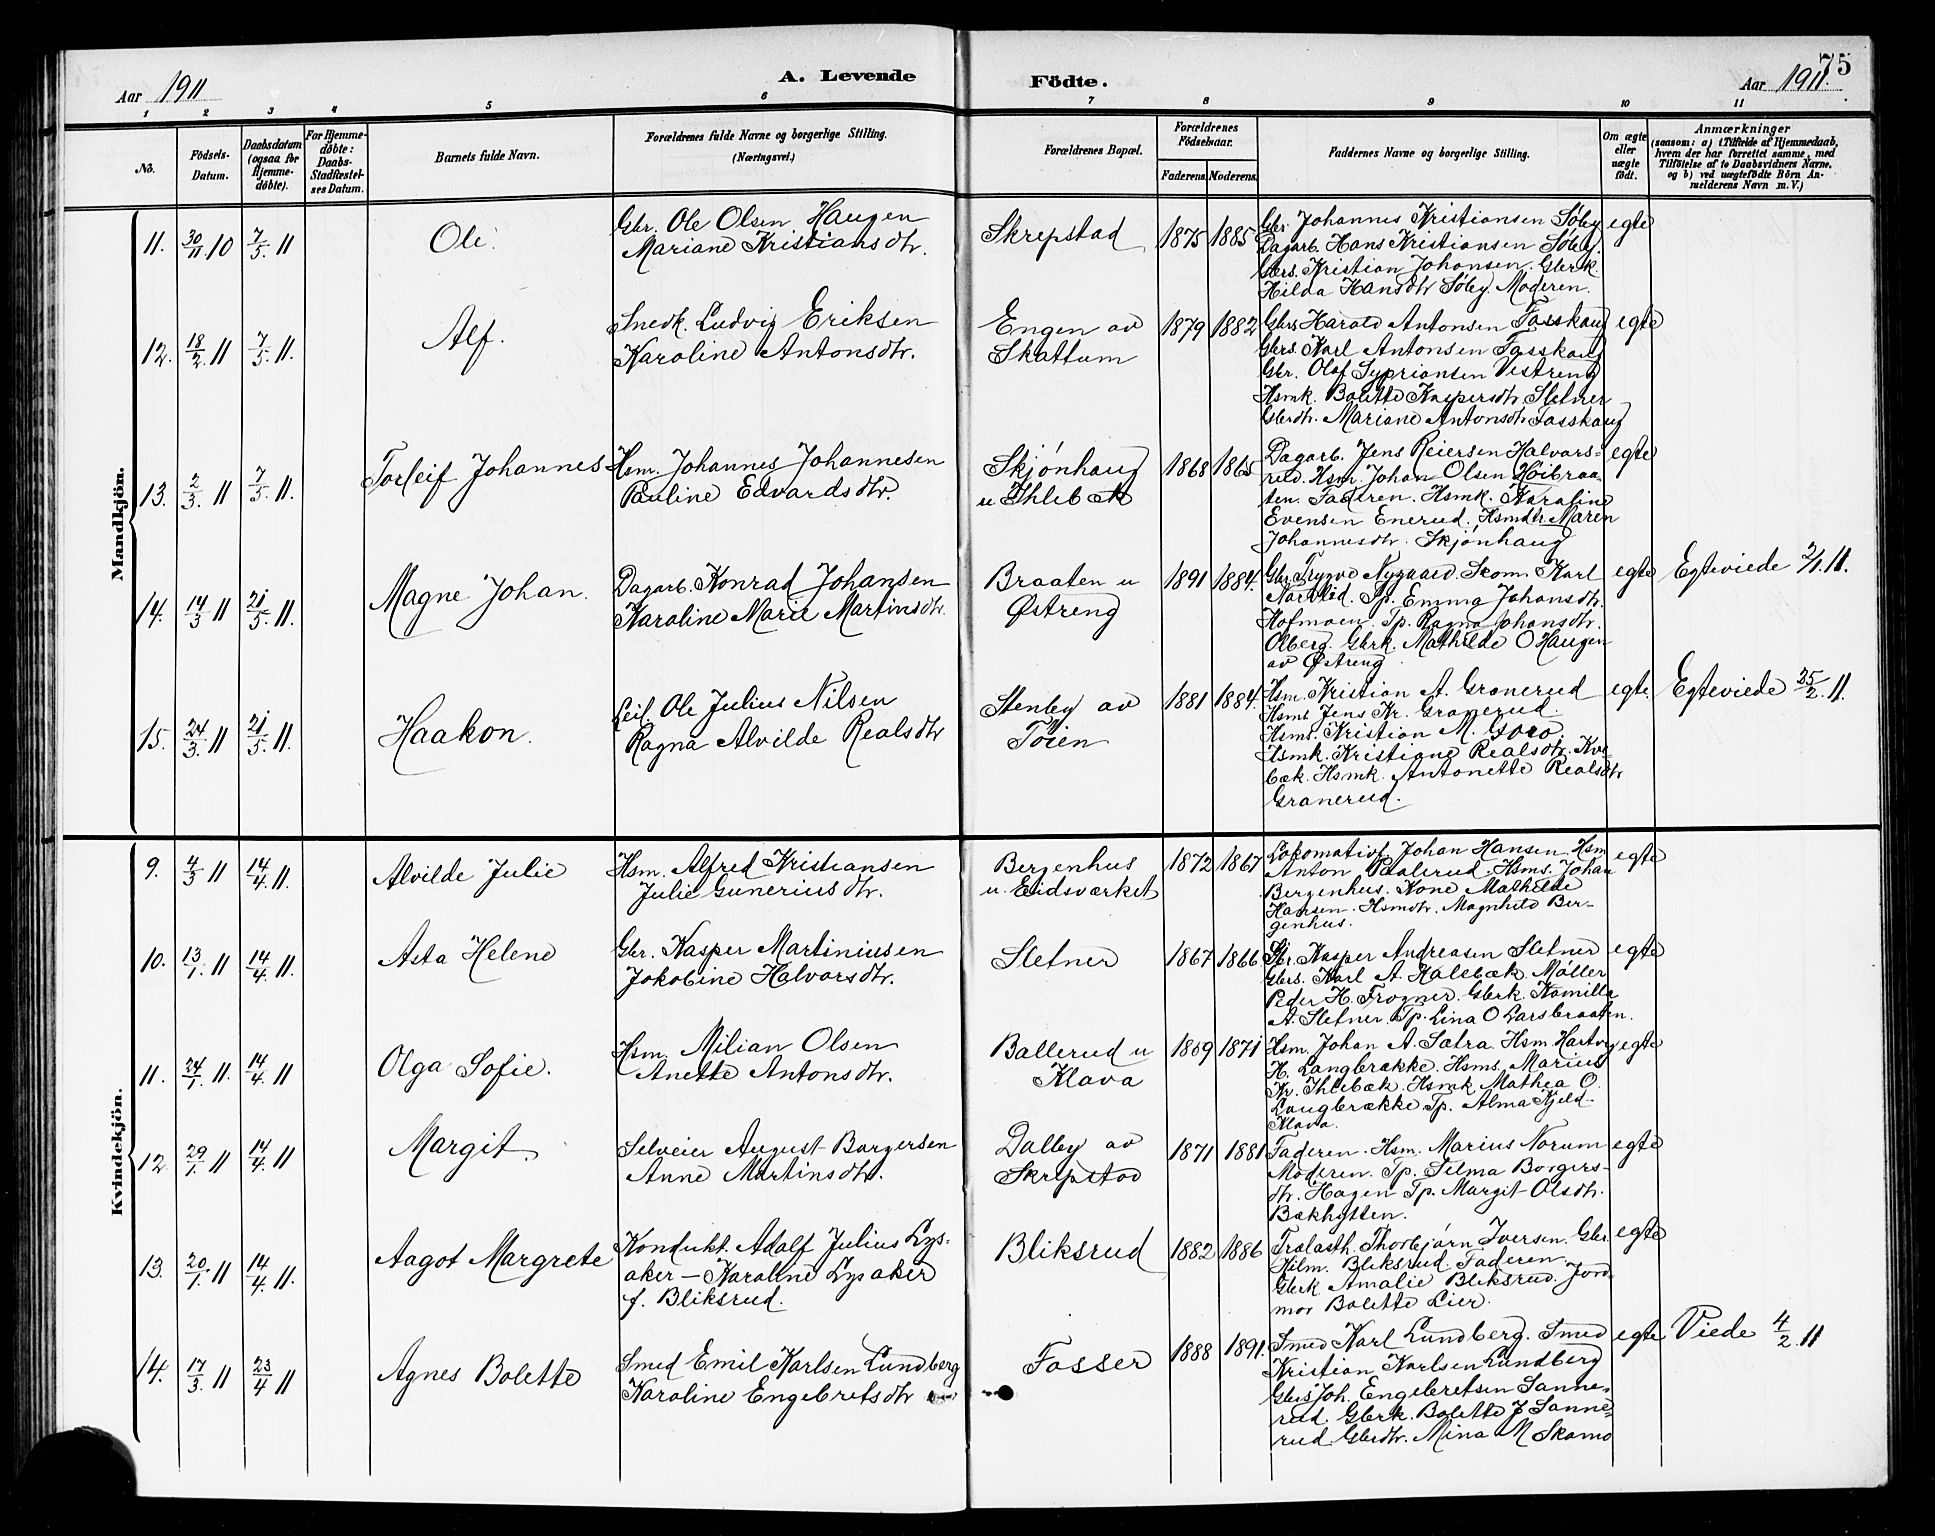 75
Aar 1911
A. Levende
Födte.
Aar 1911.
1 2 3 4 5 6 7 8 9 10 11
No.
Födsels-
Datum.
Daabsdatum
(ogsaa for
Hjemme-
döbte).
For Hjemme-
döbte:
Daabs-
Stadfæstel-
ses Datum.
Barnets fulde Navn.
Forældrenes fulde Navne og borgerlige Stilling.
(Næringsvei.)
Forældrenes Bopæl.
Forældrenes
Födselsaar.
Faderens. Moderens.
Faddernes Navne og borgerlige Stilling.
Om ægte
eller
uægte
födt.
Anmærkninger
(saasom: a) i Tilfælde af Hjemmedaab,
hvem der har forrettet samme, med
Tilföielse af to Daabsvidners Navne,
og b) ved uægtefödte Börn An-
melderens Navn m. V.)
Mandkjön.
11. 30/11 10 7/5 11 Ole.
Gbr. Ole Olsen Haugen
Mariane Kristiansdtr.
Skrepstad 1875 1885
Gbr. Johannes Kristiansen Søby
Dagarb. Hans Kristiansen Søby.
Gbrs. Kristian Johansen. Gbrk.
Hilda Hansdtr Søby. Moderen.
egte
12. 18/2 11 7/5 11. Alf.
Snedk. Ludvig Eriksen
Karoline Antonsdtr.
Engen av
Skattum
1879 1882
Gbrs Harald Antonsen Fosskaug
Gbrs. Karl Antonsen Fosskaug
Gbr. Olaf Sypriansen Vestreng
Hsmk. Bolette Kaspersdtr. Sletner
Gbrdtr. Mariane Antonsdtr Fosskaug
egte
13. 2/3 11 7/5 11. Torleif Johannes
Hsm. Johannes Johannesen
Pauline Edvardsdtr.
Skjónhaug
u Ihlebæk
1868 1865
Dagarb. Jens Reiersen Halvors-
rud. Hsm. Johan Olsen Høibraa-
ten. Faderen. Hsmk. Karoline
Evensen Enerud. Hsmdtr Maren
Johannesdtr. Skjónhaug
egte
14. 14/3 11 21/5 11. Magne Johan.
Dagarb. Konrad Johansen
Karoline Marie Martinsdtr.
Braaten u
Østreng
1891 1884.
Gbr Trygve Nygaard Skom. Karl
Narstad. Tp. Emma Johansdtr.
Hofmoen. Tp. Ragna Johansdtr.
Olberg. Gbrk. Mathilde O Haugen
av Østreng
egte Egteviede 2/1. 11.
15. 24/3. 11 21/5 11. Haakon.
Leil. Ole Julius Nilsen
Ragna Alvilde Realsdtr
Stenby av
Tøien
1881 1884.
Hsm. Kristian A. Granerud
Hsms Jens Kr. Granerud.
Hsms. Kristian M.
Hsmk. Kristiane Realsdtr. Kve-
bæk. Hsmk. Antonette Realsdtr
Granerud.
egte. Egteviede 25/2. 11.
Kvindekjön.
9. 4/3 11 14/4. 11. Alvilde Julie
Hsm. Alfred Kristiansen
Julie Gunneriusdtr.
Bergenhus
u. Eidsværket
1872 1867
Lokomotivf. Johan Hansen. Hsm
Anton Paalerud. Hsms. Johan
Bergenhus. Kone Mathilde
Hansen. Hsmdtr. Magnhild Ber-
genhus.
egte
10. 13/1. 11 14/4. 11. Asta Helene
Gbr. Kasper Martiniussen
Jokobine Halvorsdtr.
Sletner 1867 1866
Gbr. Kasper Andreasen Sletner
Gbrs. Karl A. Holebæk. Møller
Peder H. Frogner. Gbrk. Kamilla
A. Sletner. Tp. Lina O Larsbraaten.
egte
11. 24/1. 11. 14/4. 11 Olga Sofie.
Hsm. Milian Olsen
Anette Antonsdtr.
Ballerud u
Klava
1869 1871
Hsm. Johan A. Sætra. Hsm Hartvig
H. Langbrække. Hsms. Marius
Kr. Ihlebæk. Hsmk Mathea O.
Langbrække Tp. Alma Kjeld-
Klava.
egte
12. 29/1. 11 14/4. 11 Margit.
Selveier August Borgersen
Anne Martinsdtr.
Dalby av
Skrepstad
1871 1881
Faderen. Hsm. Marius Norum
Moderen. Tp. Selma Borgers-
dtr. Hagen Tp. Margit Olsdtr.
Bækhytten.
egte
13. 20/1. 11 14/4. 11. Aagot Margrete
Kondukt. Adolf Julius Lys-
aker – Karoline Lysaker
f. Bliksrud.
Bliksrud 1882 1886
Tralasth. Thorbjørn Iversen. Gbr.
Hilm. Bliksrud Faderen
Gbrk Amalie Bliksrud. Jord-
mor Bolette Lier.
egte
14. 17/3. 11 23/4 11 Agnes Bolette
Smed Emil Karlsen Lundberg
Karoline Engebretsdtr
Fosser 1888 1891.
Smed Karl Lundberg. Smed
Kristian Karlsen Lundberg
Gbrs Joh. Engebretsen Sanne-
rud. Gbrk. Bolette J Sanne-
rud. Gbrdtr. Mina M Skamo
egte Viede 4/2 11